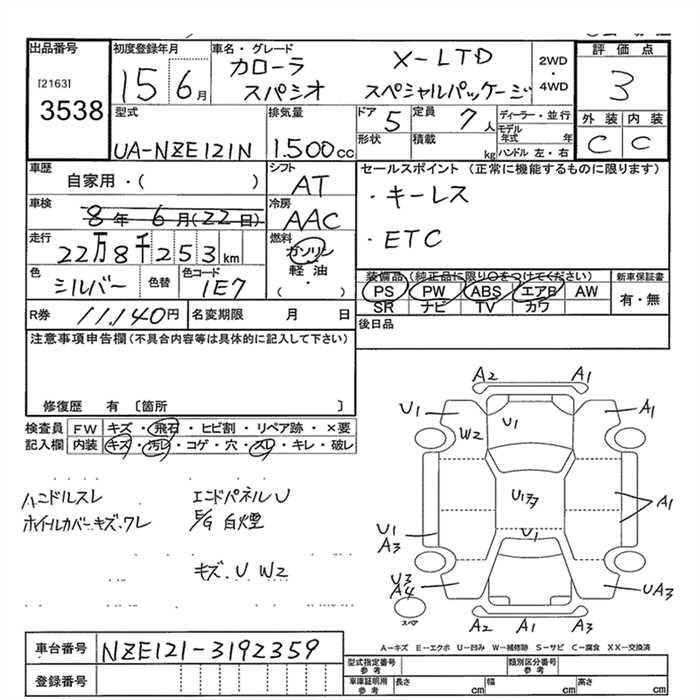 出品番号 初度登録年月 車名・グレード 評価点
[2163]
3538
15 6月
カローラ
スパシオ
X-LTD
スペシャルパッケージ
2WD
・
4WD
3
型式 排気量 ドア 5 定員 7人 ディーラー・並行
UA-NZE121N 1.500cc 形状 積載 kg モデル年式 年
ハンドル 左・右
外装 内装
C C
車歴 シフト セールスポイント (正常に機能するものに限ります)
自家用・( ) AT
・キーレス
車検 8年6月(22日) 冷房 AAC
・ETC
走行 22万8千253km 燃料 ガソリン
軽油
(・)
色 シルバー 色替 色コード 1E7
装備品 (純正品に限り○をつけてください) 新車保証書
PS PW ABS エアB AW 有・無
SR ナビ TV カワ
R券 11,140円 名変期限 月 日 後日品
注意事項申告欄(不具合内容等は具体的に記入して下さい)
修復歴 有 〔箇所 〕
検査員 FW キズ・飛石・ヒビ割・リペア跡・×要
記入欄 内装 キズ・汚レ・コゲ・穴・スレ・キレ・破レ
ハンドルスレ エンドパネルU
ホイールカバーキズ・ワレ E/G 白煙
キズ・U W2
A2 A1
U1 A1
W2 U1
U1
A1
U1 A3 U1
U3 A4 UA3
スペア
A2 A1 A3
A-キズ E-エクボ U-凹み W-補修跡 S-サビ C-腐食 XX-交換済
車台番号 NZE121-3192359
登録番号
型式指定番号 参考 類別区分番号 参考
車庫証明用 参考 長さ cm 幅 cm 高さ cm